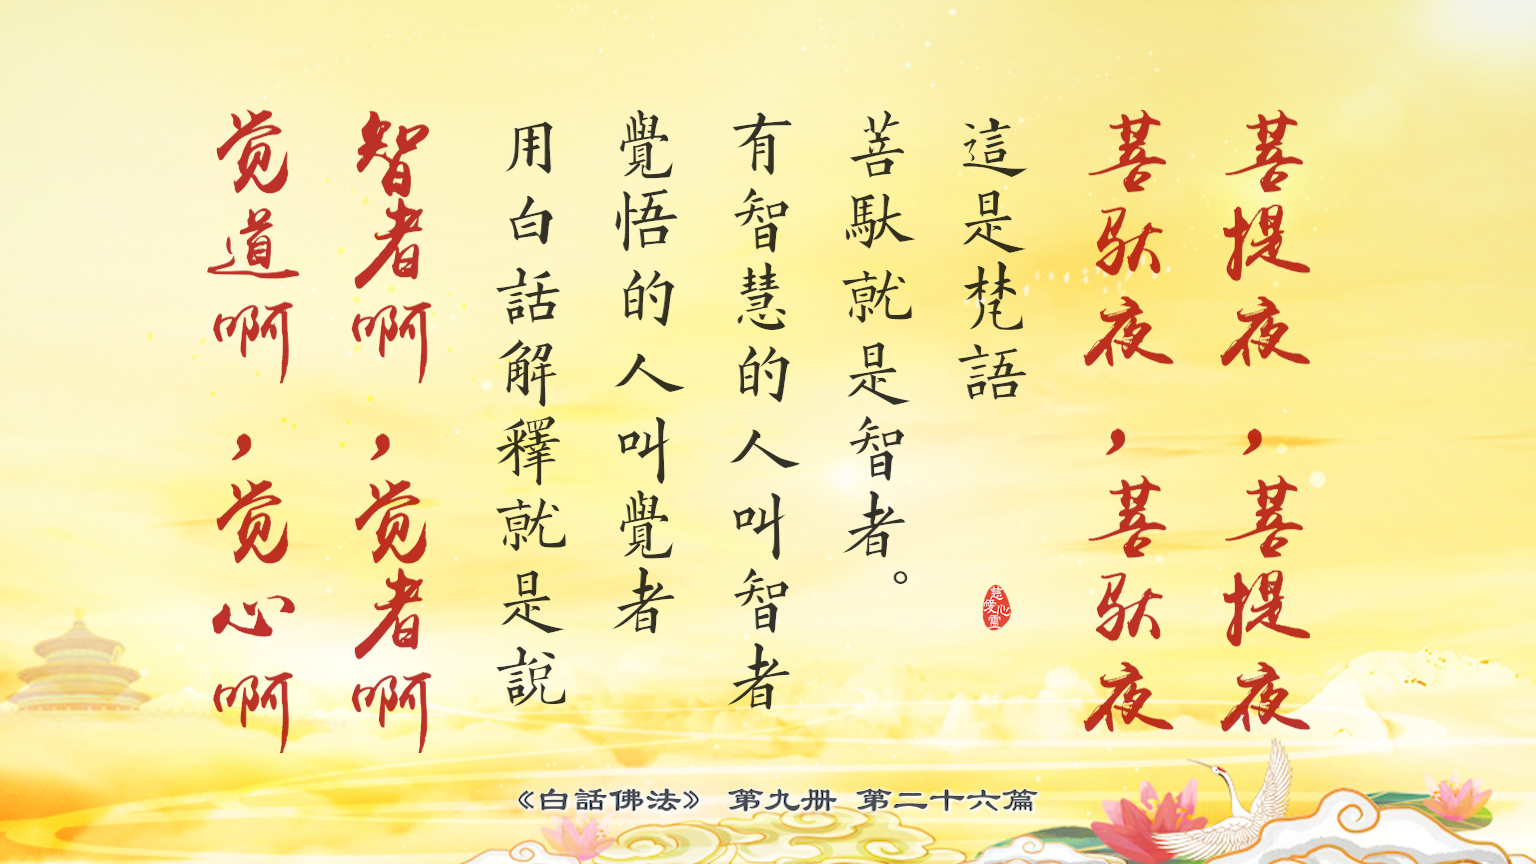 菩提夜，菩提夜
菩馱夜，菩馱夜
這是梵語
菩馱就是智者。
有智慧的人叫智者
覺悟的人叫覺者
用白話解釋就是說
智者啊，觉者啊
觉道啊，觉心啊
慈愛心靈
《白話佛法》 第九册 第二十六篇